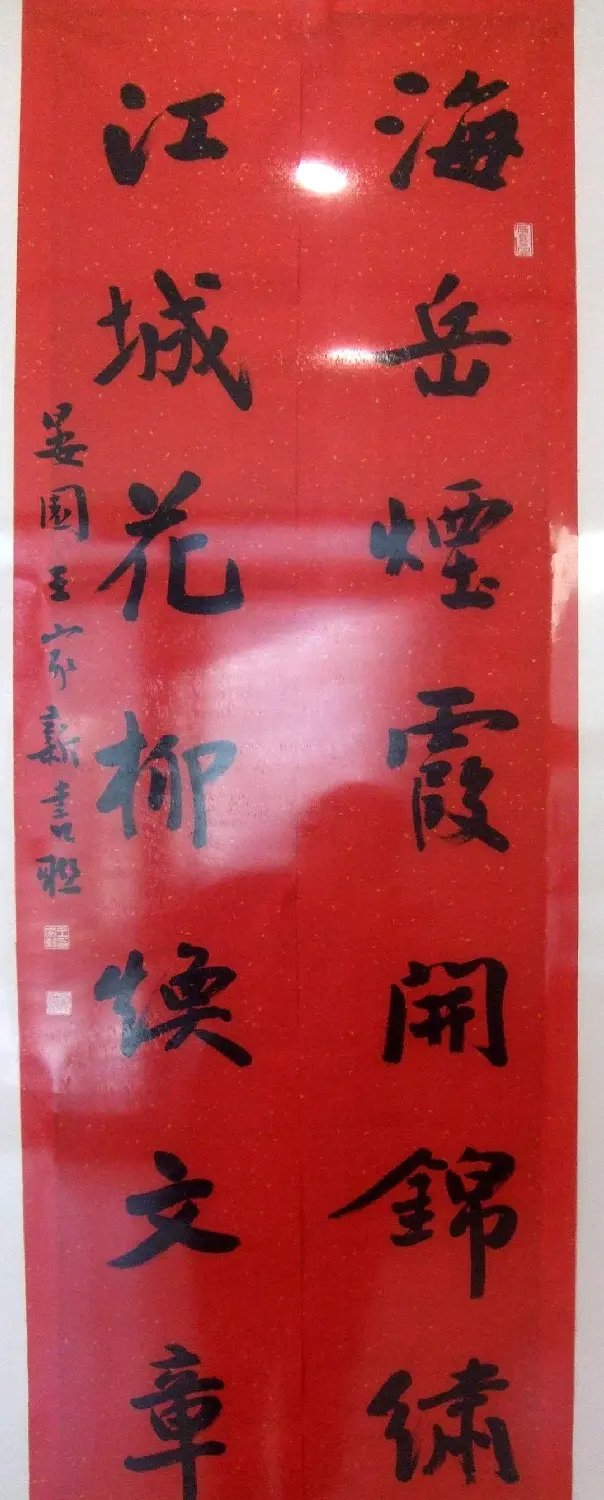 海岳煙霞開錦繡
江城花柳煥文章
晏園王家新書聯